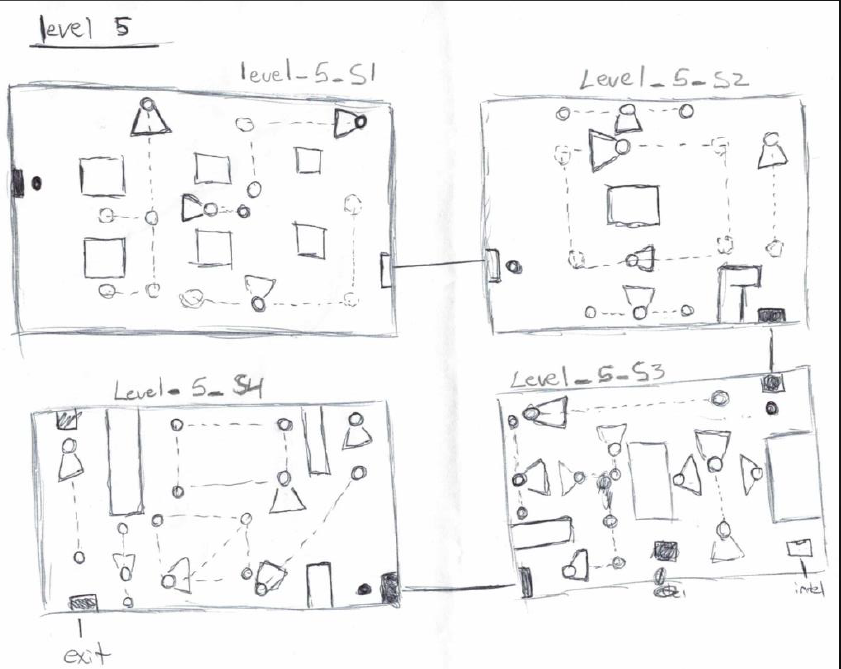 level 5
level-5-S1
Level_5_S2
Level-5_S4
Level_5_S3
intel
exit